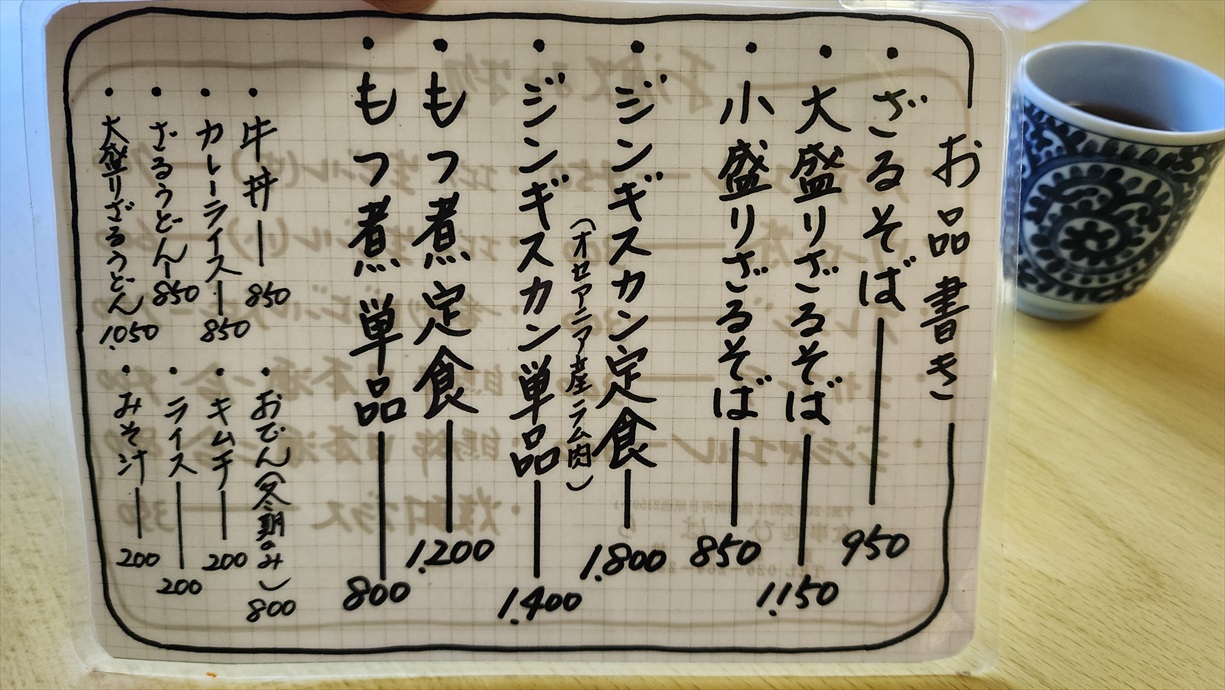 お品書き
・ざるそば 950
・大盛りざるそば 1.150
・小盛りざるそば 850
・ジンギスカン定食 1.800
(オセアニア産ラム肉)
・ジンギスカン単品 1.400
・もつ煮定食 1.200
・もつ煮単品 800
・牛丼 850
・カレーライス 850
・ざるうどん 850
・大盛りざるうどん 1.050
・おでん(冬期のみ) 800
・キムチ 200
・ライス 200
・みそ汁 200